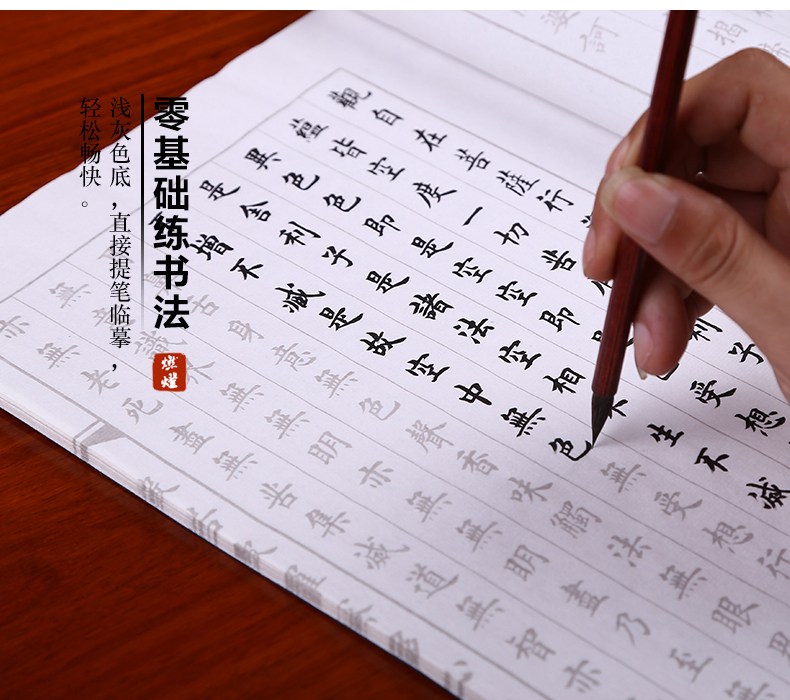 零基础练书法
浅灰色底，直接提笔临摹，
轻松畅快。
觀自在菩薩行
蘊皆空度一切苦利子
異色色即是空空即是色受想
是舍利子是諸法空相不生不滅
增不減是故空中無色無受想行
舌身意無色聲香味觸法無眼界
無意識界無無明亦無無明盡乃至
亦無老死盡無苦集滅道無智亦